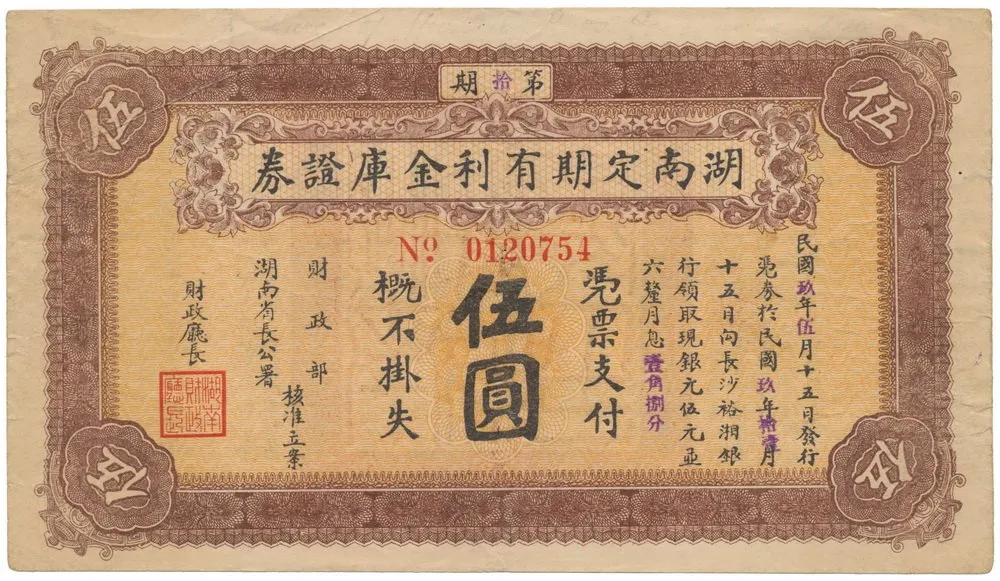 第拾期
湖南定期有利金庫證券
Nº 0120754
民國玖年伍月十五日發行
憑券於民國玖年拾壹月
十五日向長沙裕湘銀
行領取現銀元伍元並
六釐月息壹角捌分
憑票支付
伍圓
概不掛失
財政部
湖南省長公署
核准立案
財政廳長
湖南財政廳長
伍
伍
伍
伍